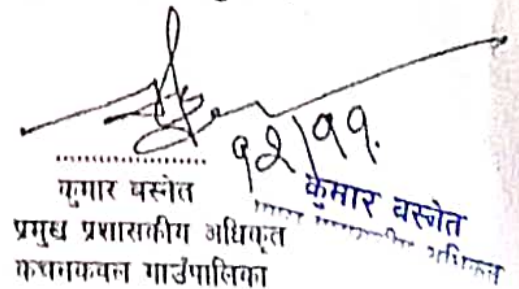 १२/११.
कुमार वस्नेत
प्रमुख प्रशासकीय अधिकृत
कचनकवल गाउँपालिका
कुमार वस्नेत
प्रशासकीय अधिकृत